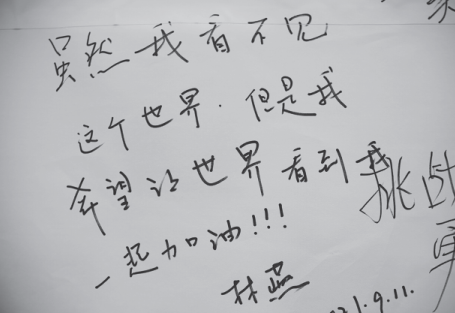 虽然我看不见
这个世界.但是我
希望让世界看到我
一起加油!!!
林燕
21.9.11.
挑战